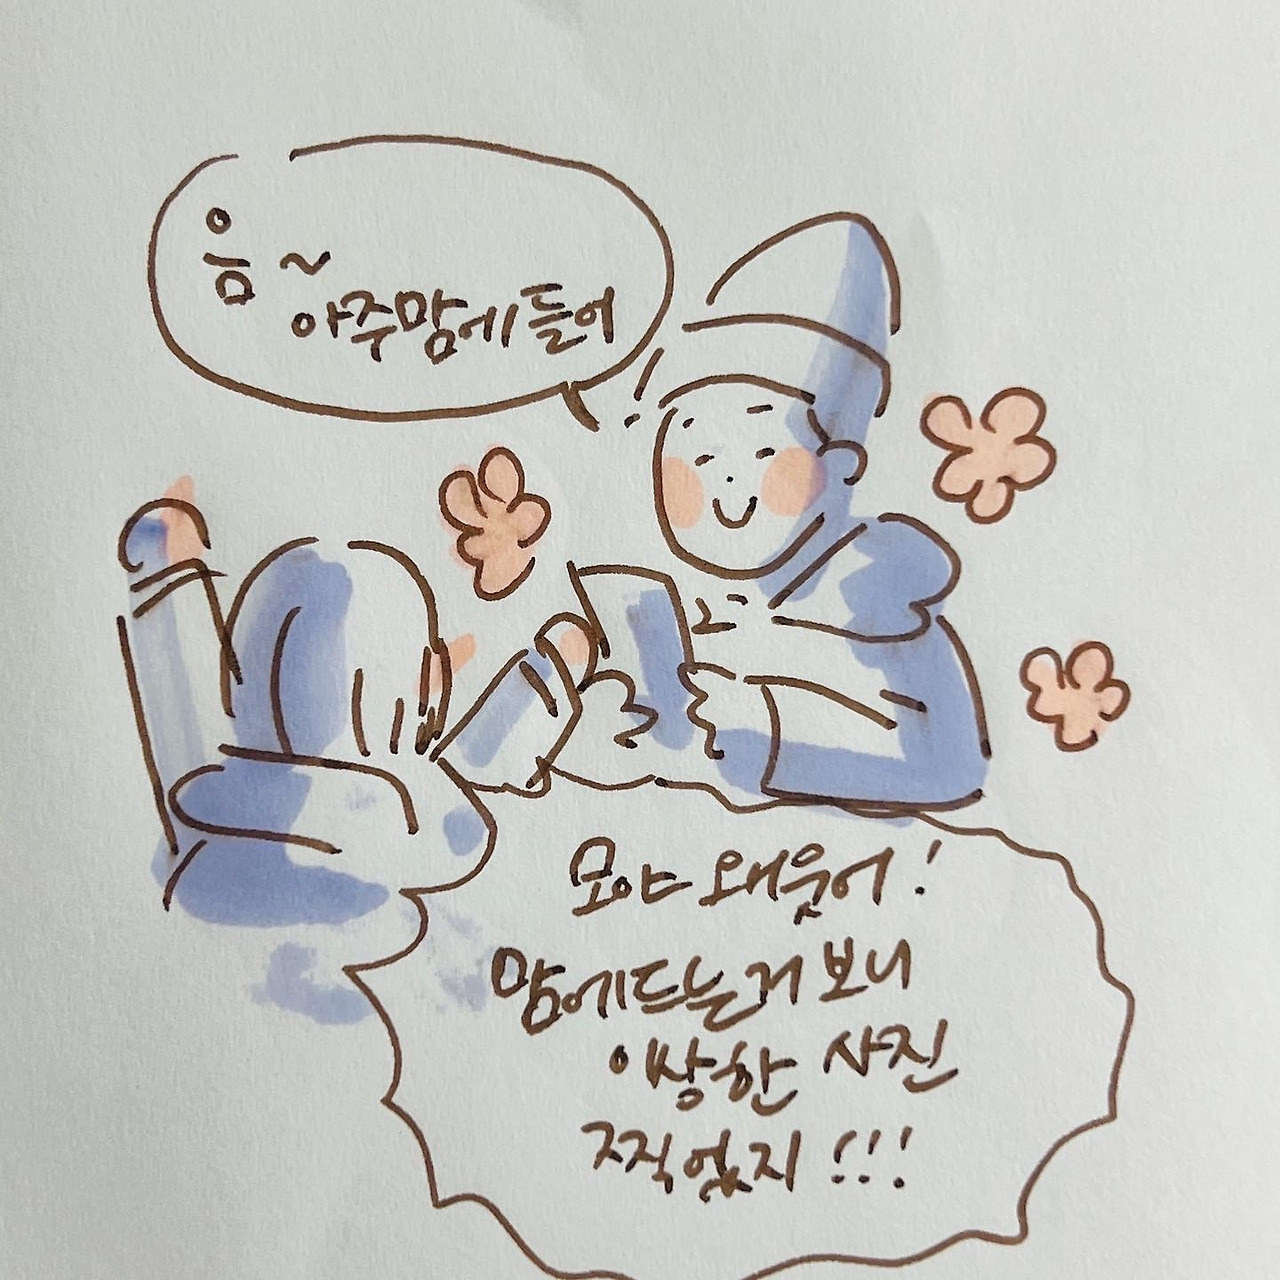 음~
아주맘에들어
모야 왜웃어!
맘에드는거 보니
이상한 사진
찍었지!!!